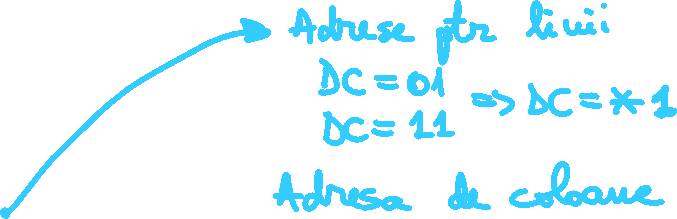 Adrese ptr linii
DC=01
DC=11 => DC=*1
Adresa de coloane